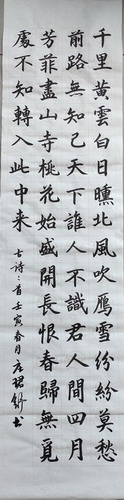 千里黃雲白日曛北風吹雁雪紛紛莫愁
前路無知己天下誰人不識君人間四月
芳菲盡山寺桃花始盛開長恨春歸無覓
處不知轉入此中来
古詩二首壬寅春月